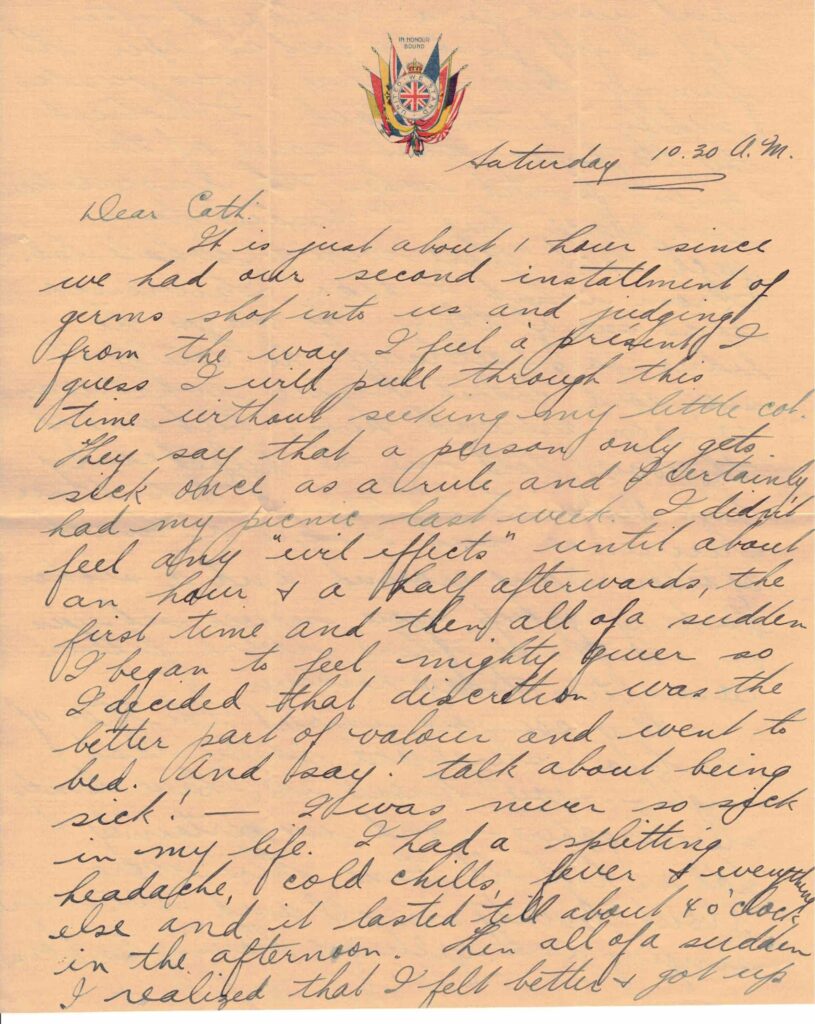 IN HONOUR
BOUND
UNITED WE STAND
Saturday 10.30 A.M.
Dear Cath.
It is just about 1 hour since
we had our second installment of
germs shot into us and judging
from the way I feel à present, I
guess I will pull through this
time without seeking my little cot.
They say that a person only gets
sick once as a rule and I certainly
had my picnic last week. I didn't
feel any "evil effects" until about
an hour & a half afterwards, the
first time and then all of a sudden
I began to feel mighty queer so
I decided that discretion was the
better part of valour and went to
bed. And say! talk about being
sick! — I was never so sick
in my life. I had a splitting
headache, cold chills, fever & everything
else and it lasted till about 4 o'clock
in the afternoon. Then all of a sudden
I realized that I felt better & got up